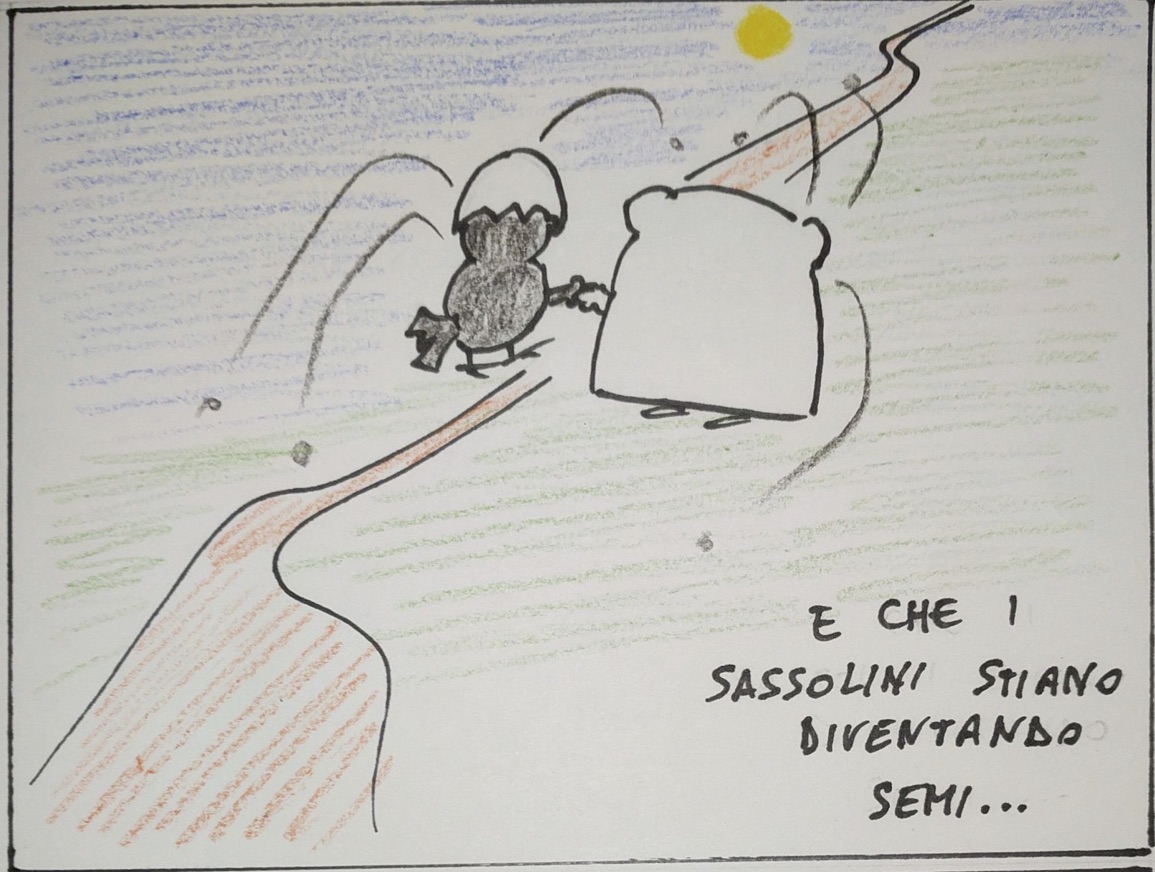 E CHE I
SASSOLINI STIANO
DIVENTANDO
SEMI...